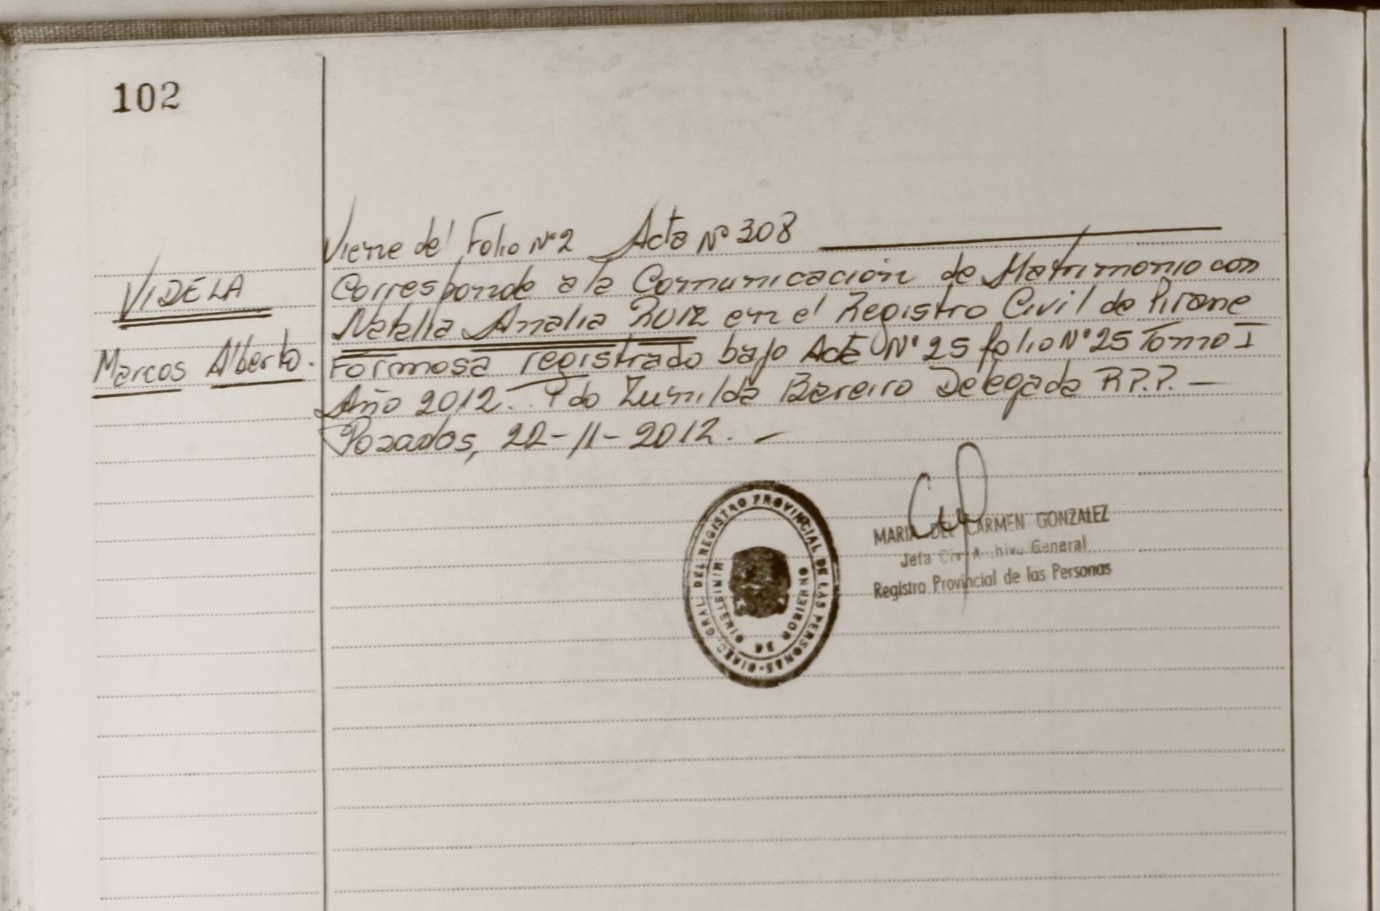 102
Viene del Folio Nº2 Acta Nº 308
VIDELA
Marcos Alberto.
Corresponde a la Comunicación de Matrimonio con
Natalia Analia Ruiz en el Registro Civil de Pirane
Formosa registrado bajo Acta Nº 25 folio Nº 25 Tomo I
Año 2012. Fdo Zunilda Bareiro Delegada R.P.P. —
Posadas, 22-11-2012. —
DIREC. GRAL. DEL REGISTRO PROVINCIAL DE LAS PERSONAS
MINISTERIO DE GOBIERNO
MARIA DEL CARMEN GONZALEZ
Jefa Archivo General
Registro Provincial de las Personas